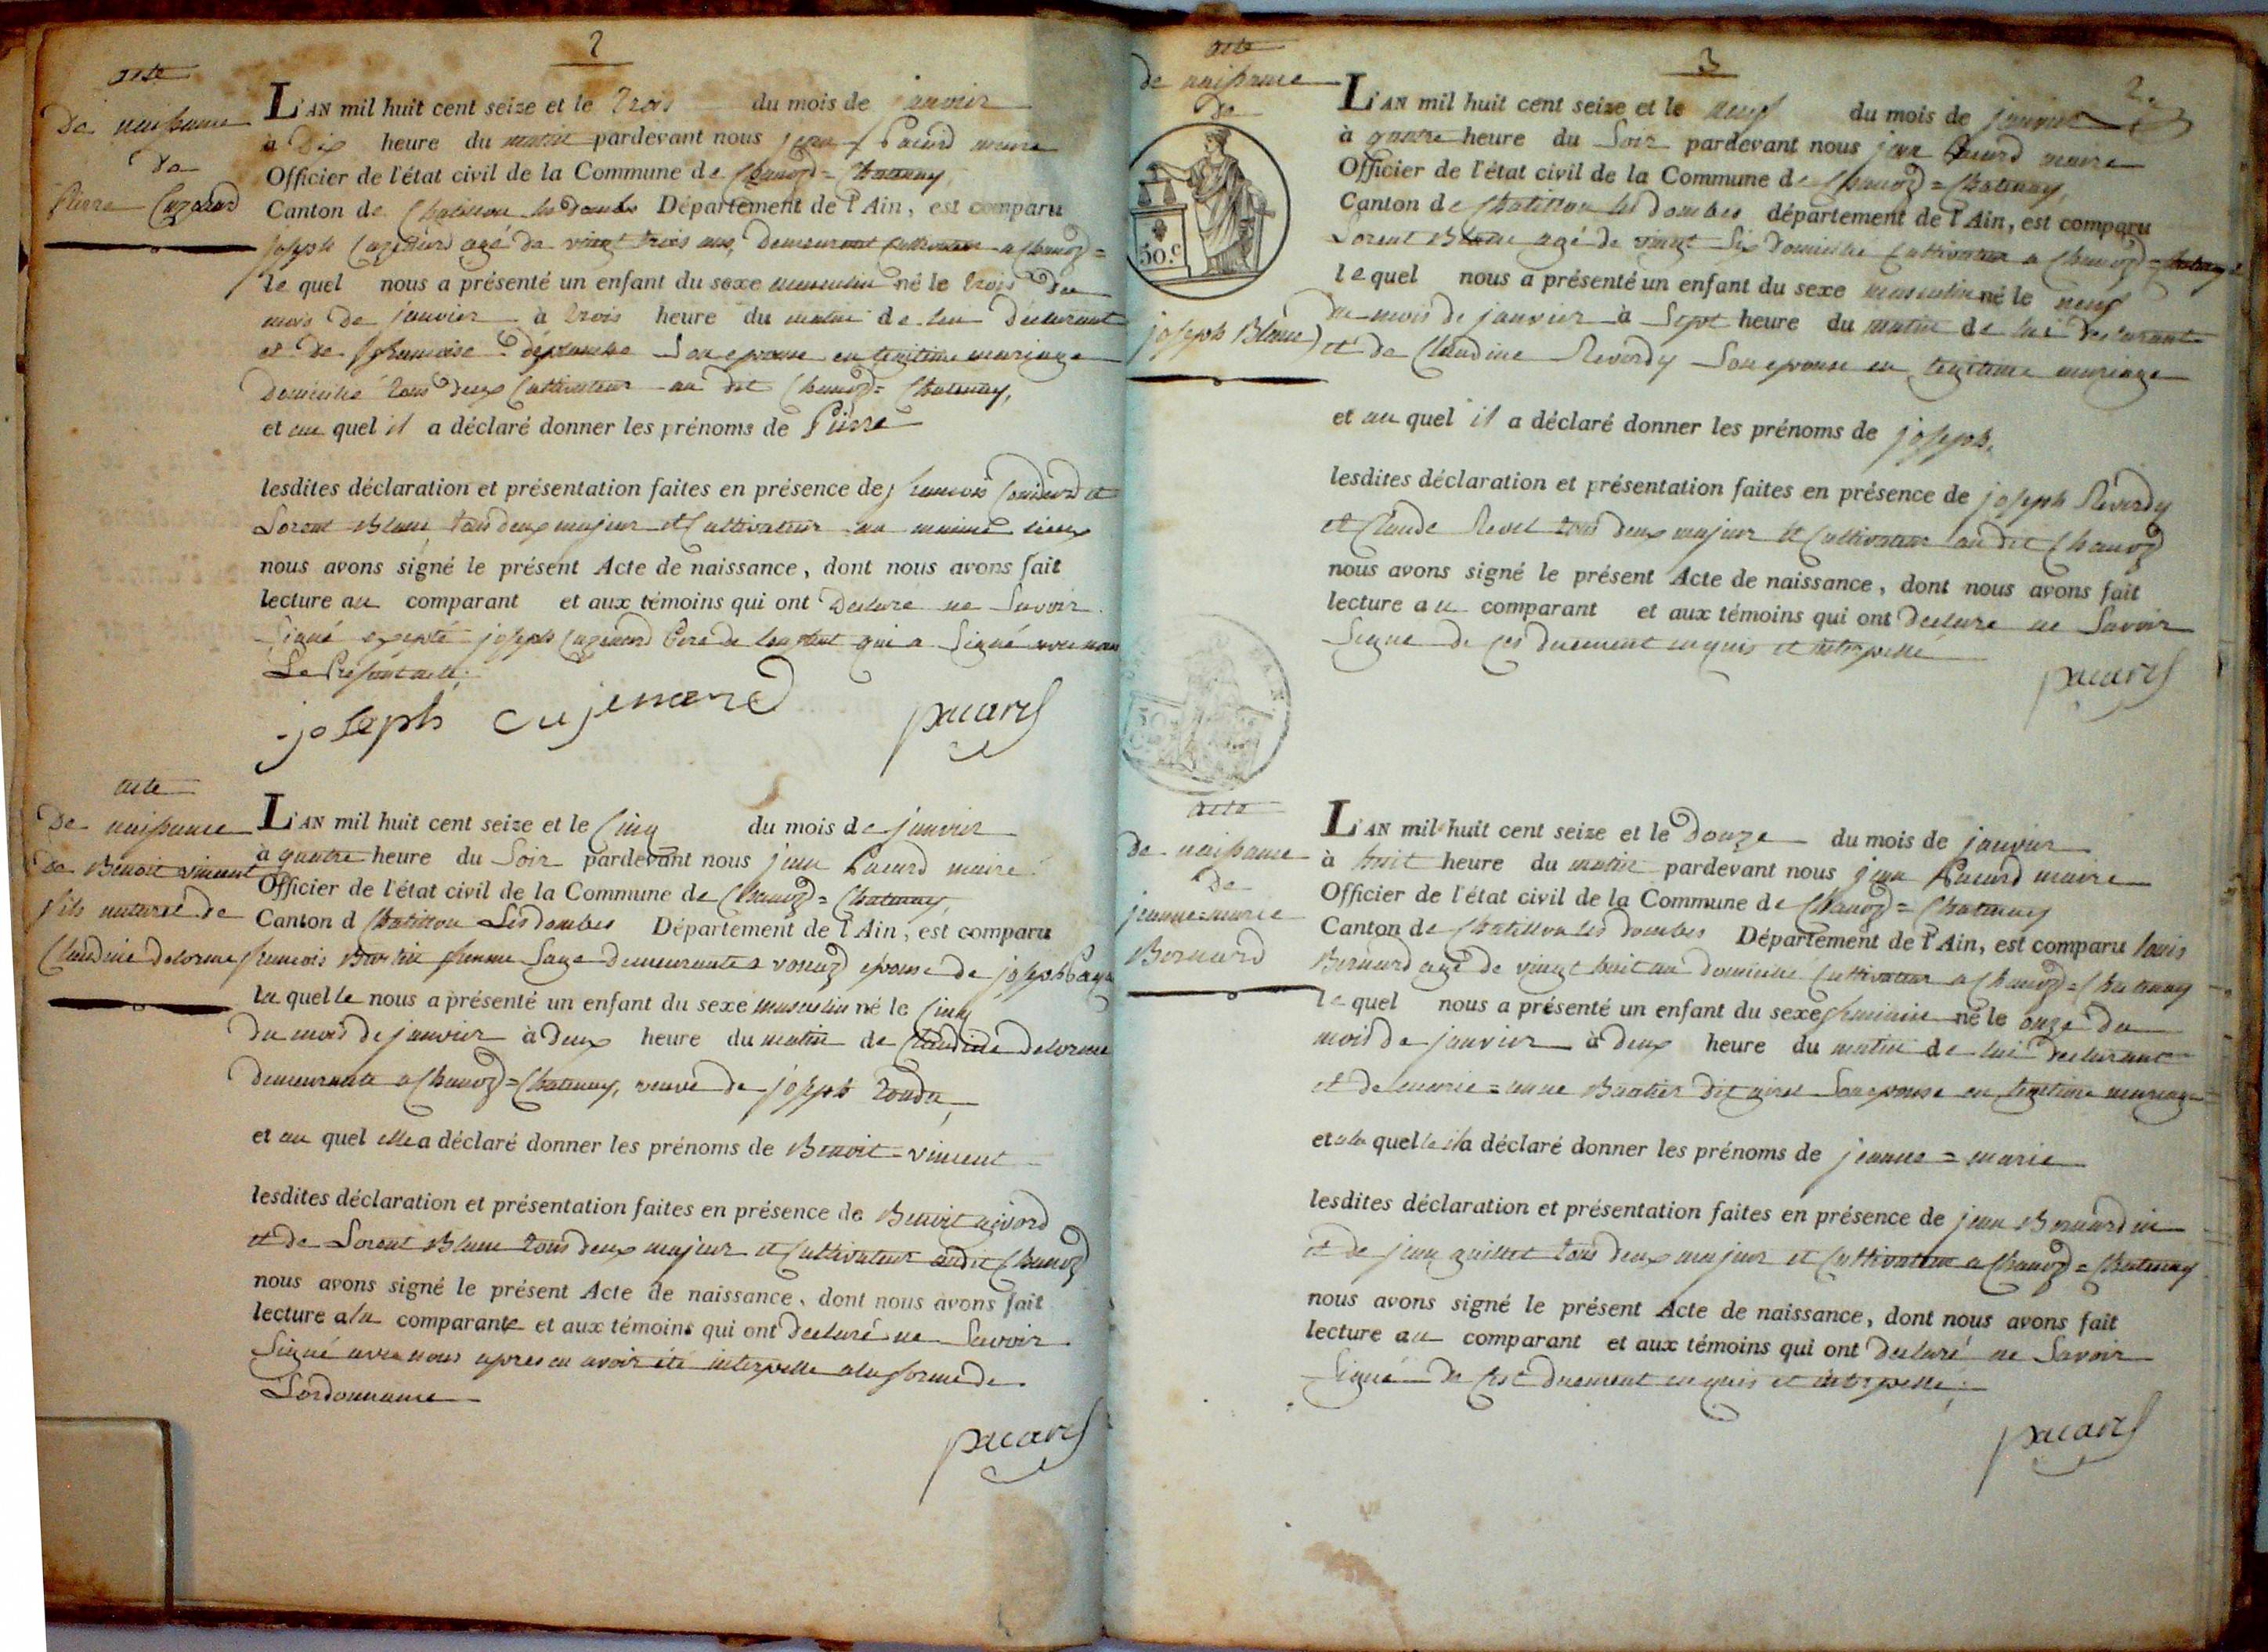 2
acte
de naissance
de
Pierre Cuzenard
L'AN mil huit cent seize et le trois du mois de janvier
à Dix heure du matin pardevant nous jean Pacard maire
Officier de l'état civil de la Commune de Chanoz = Chatenay,
Canton de Chatillon les dombes Département de l'Ain, est comparu
joseph Cuzenard agé de vingt trois ans, demeurant Cultivateur a Chanoz =
le quel nous a présenté un enfant du sexe masculin né le trois du
mois de janvier à trois heure du matin de lui declarant
et de fransoise son epouse en legitime mariage
domicilié tous deux Cultivateur au dit Chanoz = Chatenay,
et au quel il a déclaré donner les prénoms de Pierre
lesdites déclaration et présentation faites en présence de francois et
Lorent Blanc tous deux majeur et Cultivateur au meme lieux
nous avons signé le présent Acte de naissance, dont nous avons fait
lecture au comparant et aux témoins qui ont declare ne Savoir
Signé joseph Cuzenard Pere de lenfant qui a Signé avec nous
Le Present acte.
joseph cujenard pacard
acte
de naissance
de Benoit vincent
fils naturel de
Claudine delorme
L'AN mil huit cent seize et le Cinq du mois de janvier
à quatre heure du Soir pardevant nous jean Pacard maire
Officier de l'état civil de la Commune de Chanoz = Chatenay,
Canton d Chatillon Les dombes Département de l'Ain, est comparu
femme Sage demeurante a vonnaz epouse de joseph
la quelle nous a présenté un enfant du sexe masculin né le Cinq
du mois de janvier à deux heure du matin de Claudine delorme
demeurante a Chanoz = Chatenay, veuve de joseph
et au quel elle a déclaré donner les prénoms de Benoit = vincent
lesdites déclaration et présentation faites en présence de Benoit
et de Lorent Blanc tous deux majeur et Cultivateur audit Chanoz
nous avons signé le présent Acte de naissance, dont nous avons fait
lecture a la comparante et aux témoins qui ont declaré ne Savoir
Signé avec nous apres en avoir été interpelle a la forme de
Lordonnance
pacard
3
acte
de naissance
de
50.c
joseph Blanc
L'AN mil huit cent seize et le neuf du mois de janvier
à quatre heure du Soir pardevant nous jean Pacard maire
Officier de l'état civil de la Commune de Chanoz = Chatenay,
Canton de Chatillon les dombes département de l'Ain, est comparu
Lorent Blanc agé de vingt Six domicilié Cultivateur a Chanoz = Chatenay
le quel nous a présenté un enfant du sexe masculin né le neuf
du mois de janvier à Sept heure du matin de lui declarant
et de Claudine Reverdy Son epouse en legitime mariage
et au quel il a déclaré donner les prénoms de joseph.
lesdites déclaration et présentation faites en présence de joseph Reverdy
et Claude Revel tous deux majeur et Cultivateur au dit Chanoz
nous avons signé le présent Acte de naissance, dont nous avons fait
lecture au comparant et aux témoins qui ont declare ne Savoir
Signe de ces duement enquis et interpelle
pacard
acte
de naissance
de
jeanne = marie
Bernard
L'AN mil huit cent seize et le Douze du mois de janvier
à huit heure du matin pardevant nous jean Pacard maire
Officier de l'état civil de la Commune de Chanoz = Chatenay
Canton de Chatillon les dombes Département de l'Ain, est comparu louis
Bernard agé de vingt huit an domicilié Cultivateur a Chanoz = Chatenay
le quel nous a présenté un enfant du sexe feminin né le onze du
mois de janvier à deux heure du matin de lui declarant
et de marie = anne dit Son epouse en legitime mariage
et a la quelle il a déclaré donner les prénoms de jeanne = marie
lesdites déclaration et présentation faites en présence de jean Bernardin
et de jean guillet tous deux majeur et Cultivateur a Chanoz = Chatenay
nous avons signé le présent Acte de naissance, dont nous avons fait
lecture au comparant et aux témoins qui ont declaré ne Savoir
Signé de duement enquis et interpellé.
pacard